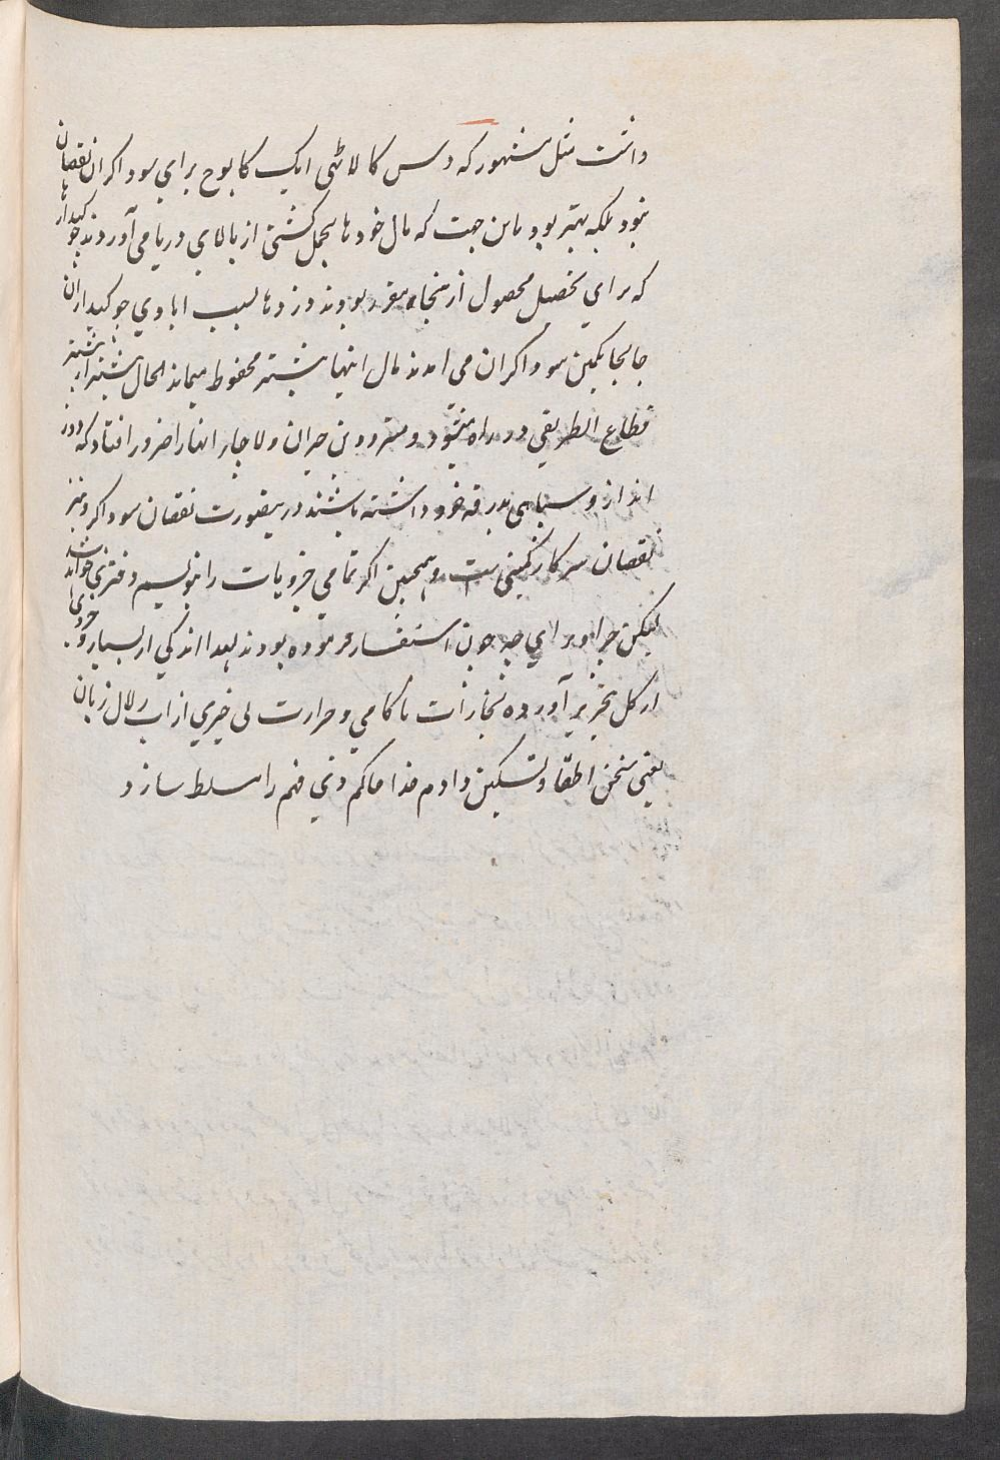 داشت مثل مشهور که دس کا لاٹھی ایک کا بوج برای سوداکران نقصان
نبود بلکه بهتر بود باین جهت که مال خودها بحمل کشتی از بالای دریا می آوردند چوکیدارها
که برای تحصیل محصول از پنجاه مقرر بودند دزدها بسبب ابادی چوکیداران
جابجا بکمین سوداکران می امدند مال اینها بیشتر محفوظ میماند الحال بیشتر از بیشتر
قطاع الطریقی در راه میشود و مترددین حیران و لاچار انها را ضرور افتاد که
انداز و سپاهی بدرقه خود داشته باشند درینصورت نقصان سوداکر و نیز
نقصان سرکار کمپنی ست و همچنین اکر تمامی جزویات را بنویسم دفتری خواهد شد
لیکن چرا و برای چه چون استفسار فرموده بودند لهذا اندکی از بسیار و جزوی
از کل بتحریر آورده بخارات ناکامی و حرارت بی خبری از اب زلال زبان
یعنی سخن اطفا و تسکین دادم خدا حاکم ذی فهم را مسلط سازد